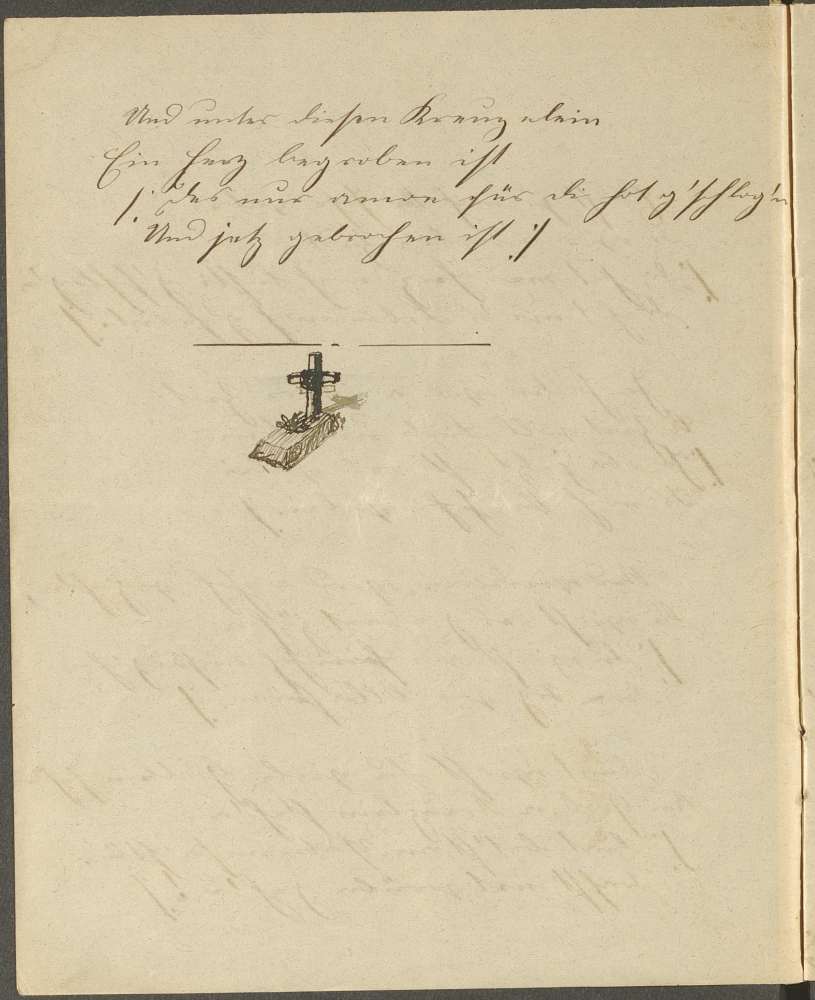 Und unter diesen Kreuz alein
Ein Herz begroben ist
/: Des nur amoe für di hot g'schlog'n
Und jetz gebrochen ist :/